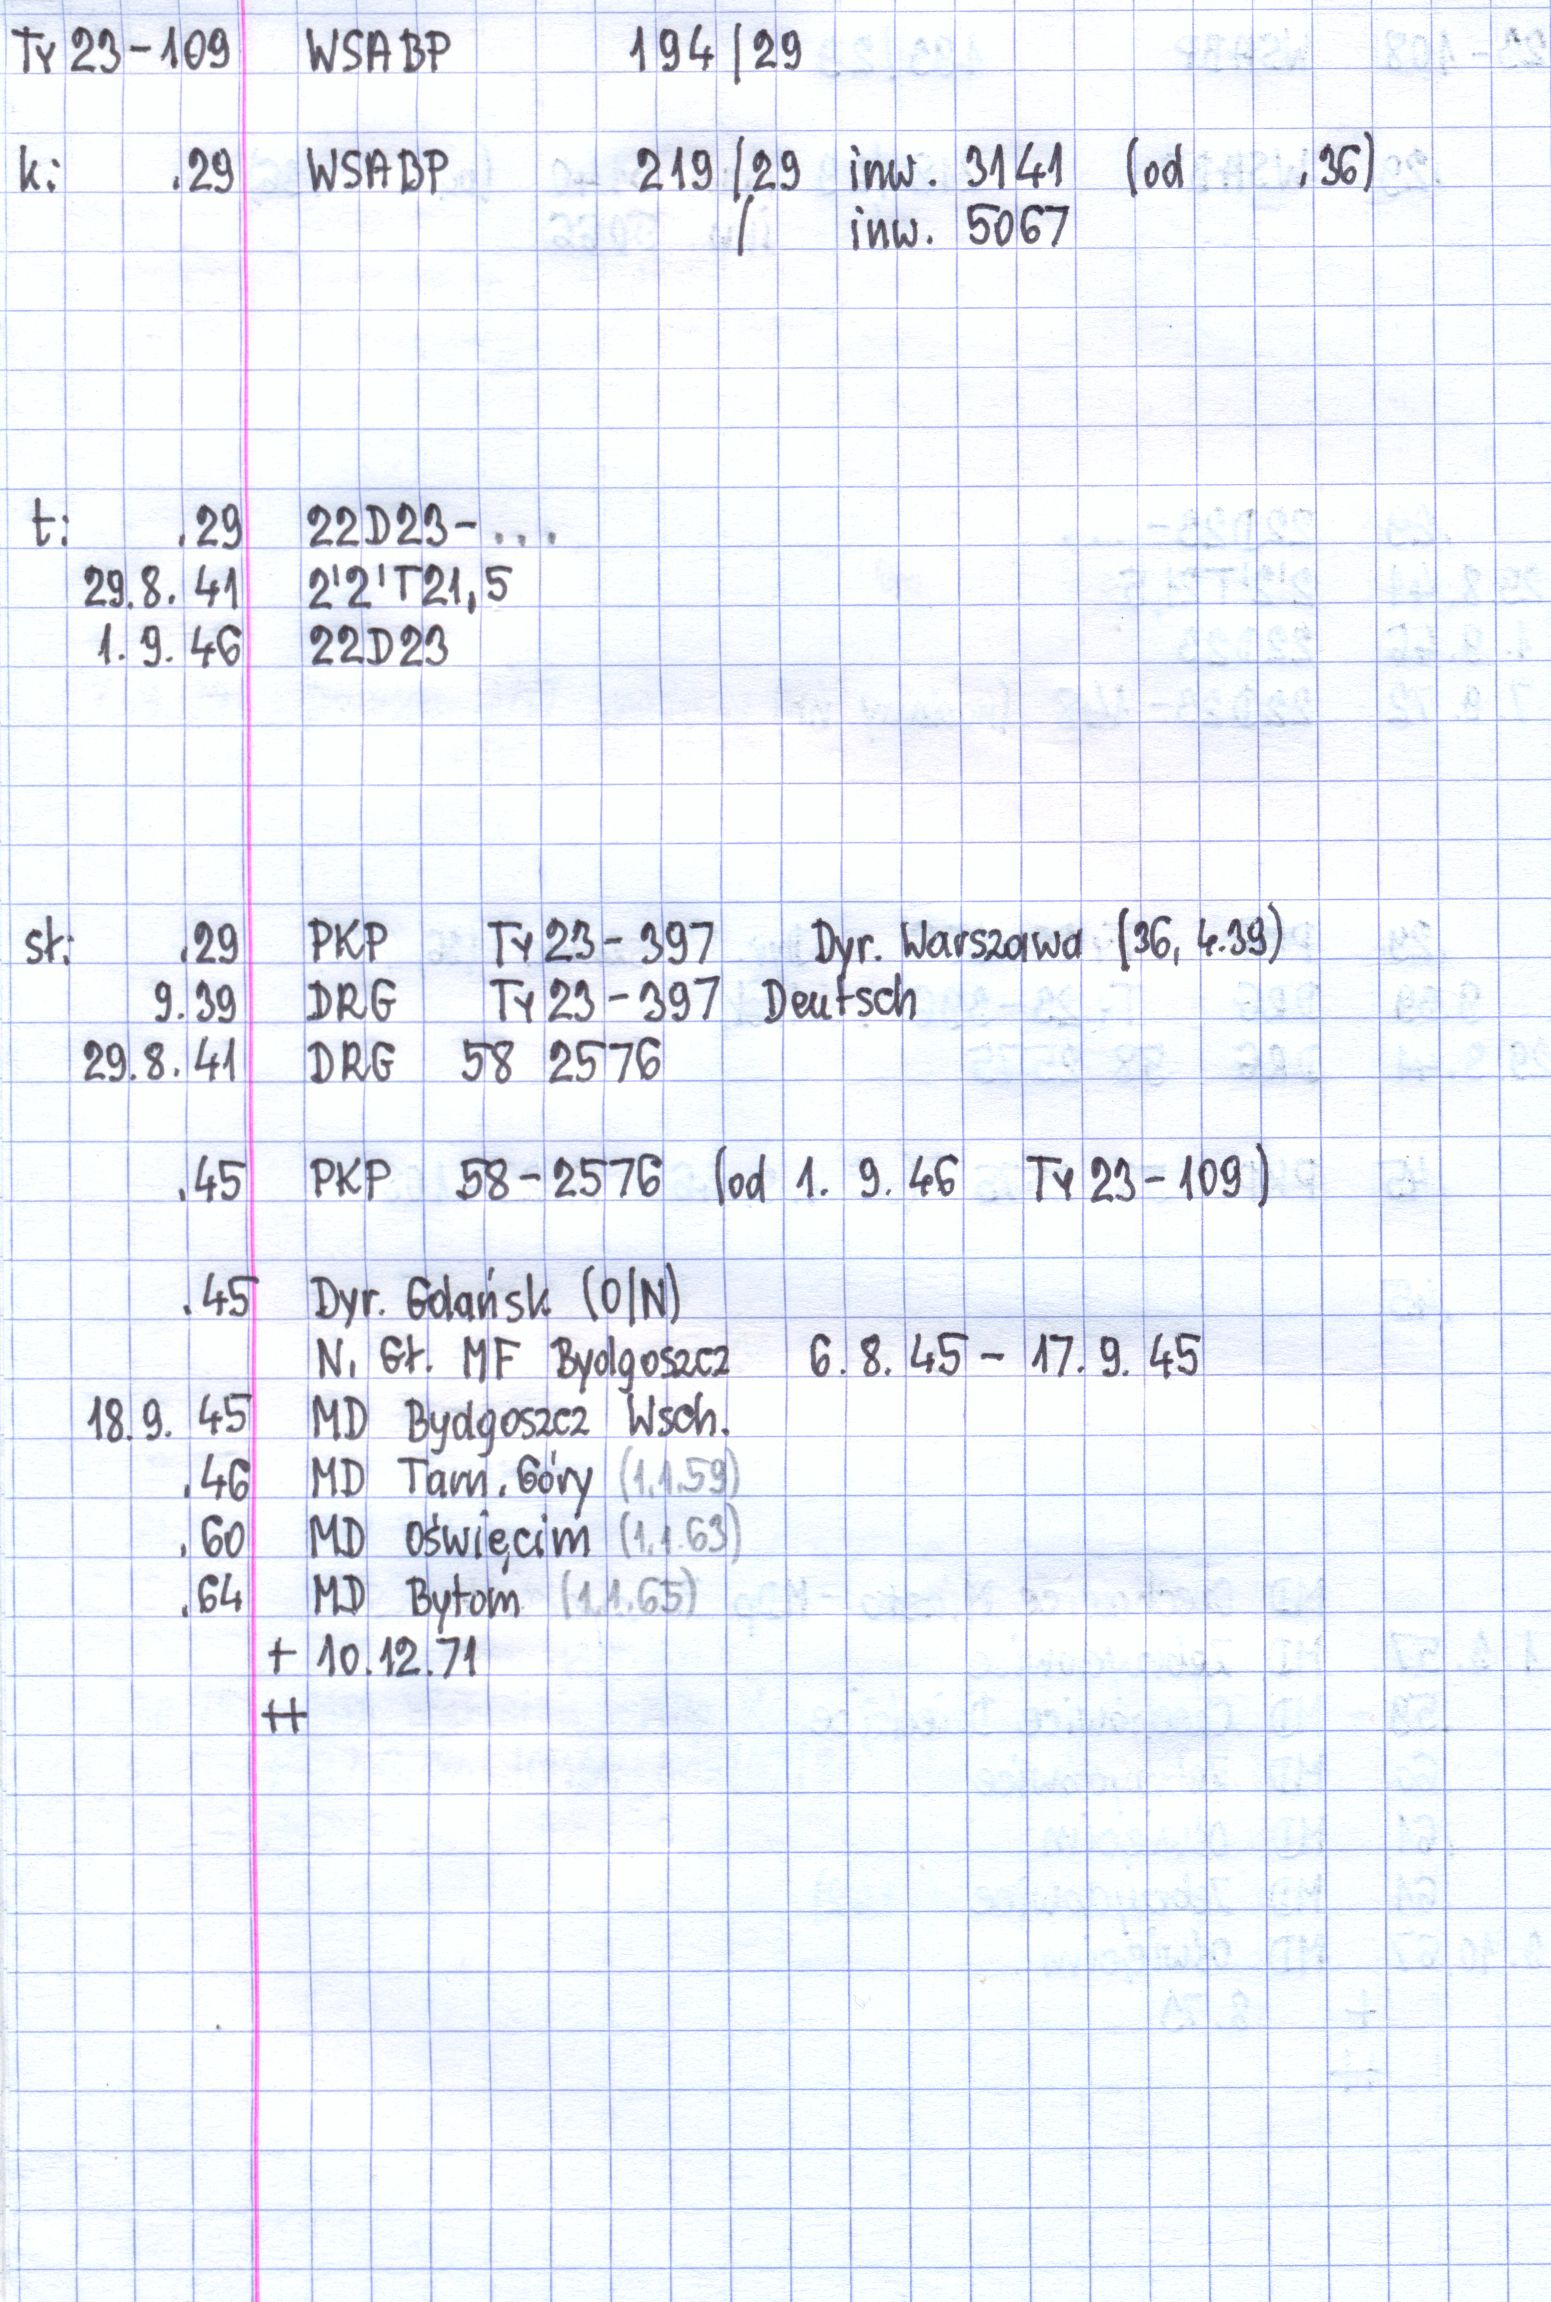 Ty 23-109 WSABP 194/29
k: .29 WSABP 219/29 inw. 3141 (od .36)
/ inw. 5067
t: .29 22D23-...
29.8.41 2'2'T21,5
1.9.46 22D23
sł: .29 PKP Ty 23-397 Dyr. Warszawa (36, 4.39)
9.39 DRG Ty 23-397 Deutsch
29.8.41 DRG 58 2576
.45 PKP 58-2576 (od 1.9.46 Ty 23-109)
.45 Dyr. Gdańsk (O/N)
N. Gł. MF Bydgoszcz 6.8.45 - 17.9.45
18.9.45 MD Bydgoszcz Wsch.
.46 MD Tarn. Góry (1.1.59)
.60 MD Oświęcim (1.1.63)
.64 MD Bytom (1.1.65)
+ 10.12.71
++